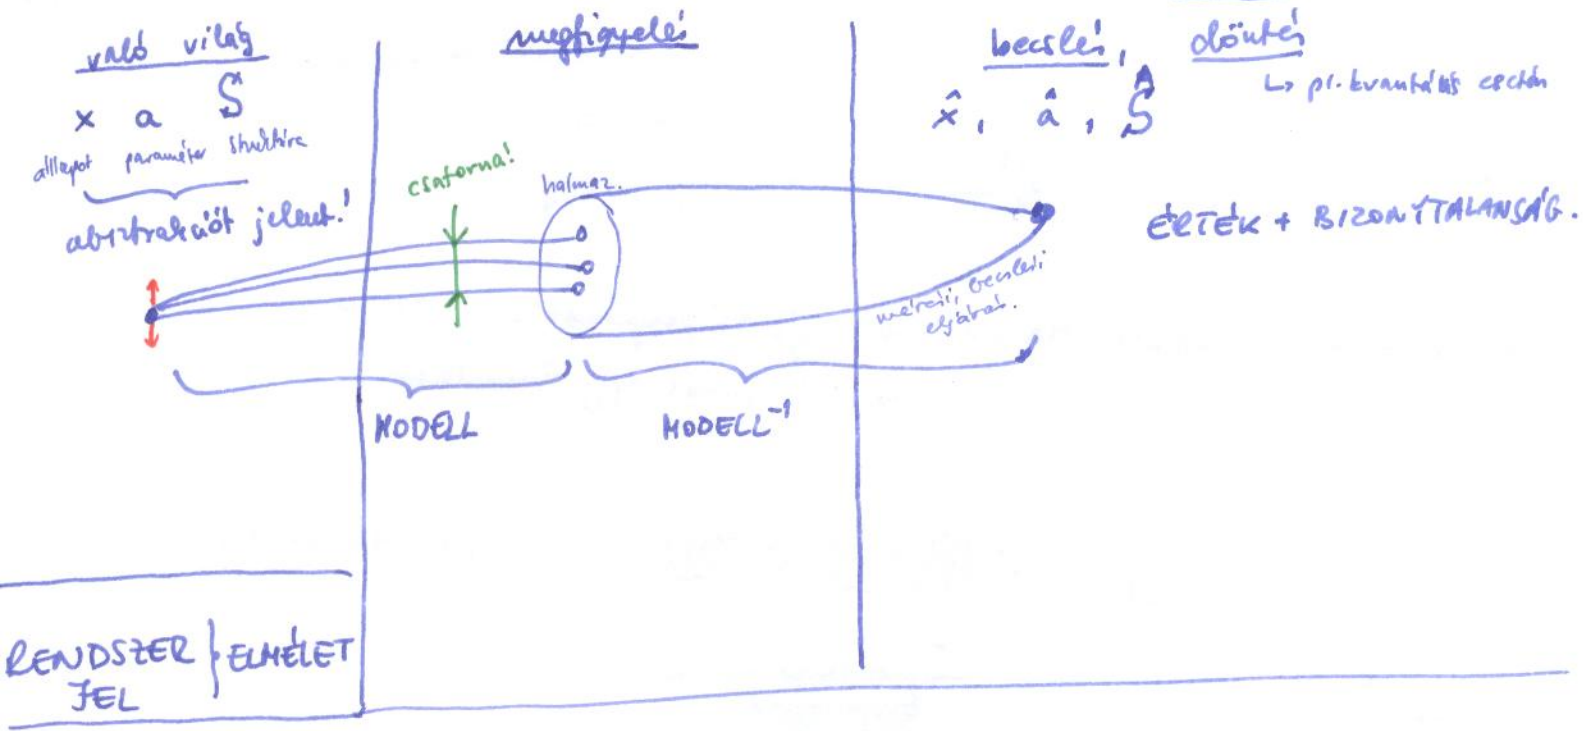 való világ
x a S
állapot paraméter struktúra
absztrakciót jelent!
csatorna!
megfigyelés
halmaz.
becslés, döntés
↳ pl. kvantálás esetén
x̂, â, Ŝ
ÉRTÉK + BIZONYTALANSÁG.
mérési, becslési
eljárás.
MODELL
MODELL⁻¹
RENDSZER } ELMÉLET
JEL